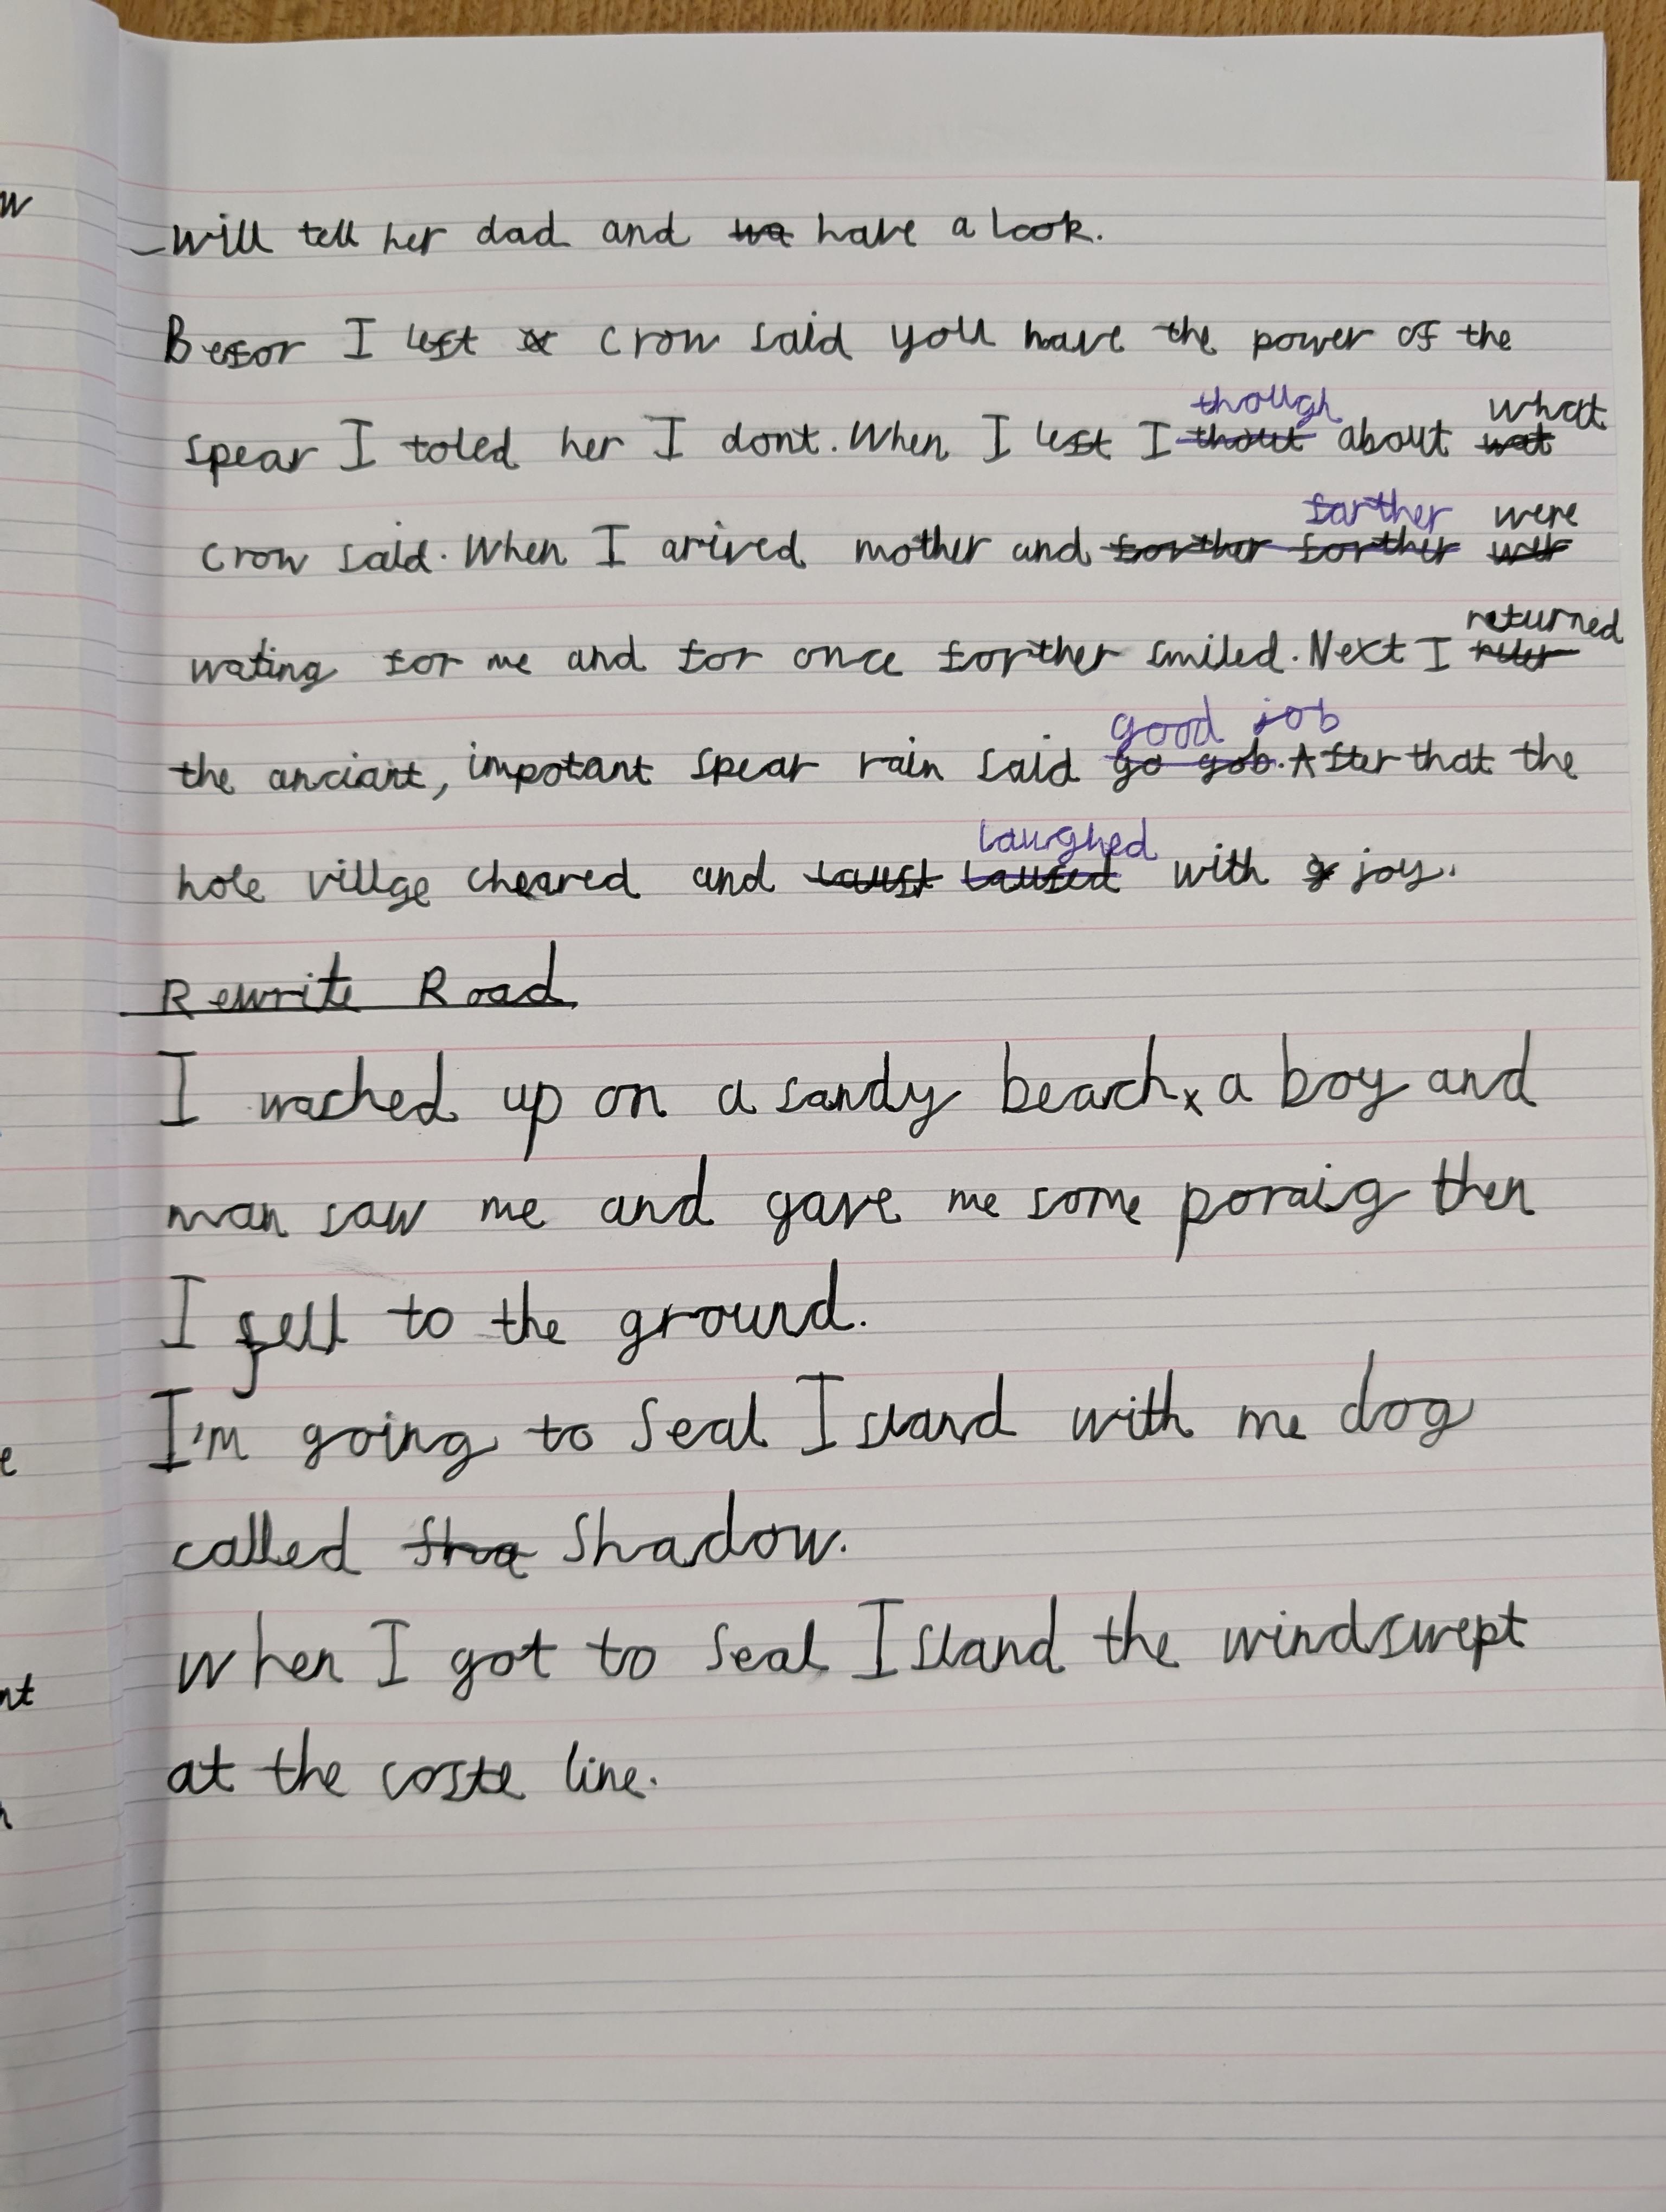 will tell her dad and ~~wa~~ have a look.
Befor I left crow said you have the power of the
spear I toled her I dont. When I left I ~~thout~~ though about ~~wat~~ what
crow said. When I arived mother and ~~forther~~ ~~forther~~ farther ~~wer~~ were
wating for me and for once forther smiled. Next I returned
the anciant, impotant spear rain said ~~go gob~~ good job. After that the
hole villge cheared and ~~laust~~ ~~laufed~~ laughed with joy.
Rewrite Road
I wached up on a sandy beach x a boy and
man saw me and gave me some poraig then
I fell to the ground.
I'm going to Seal Island with me dog
called ~~Shoa~~ Shadow.
When I got to Seal Island the windswept
at the coste line.
w
e
nt